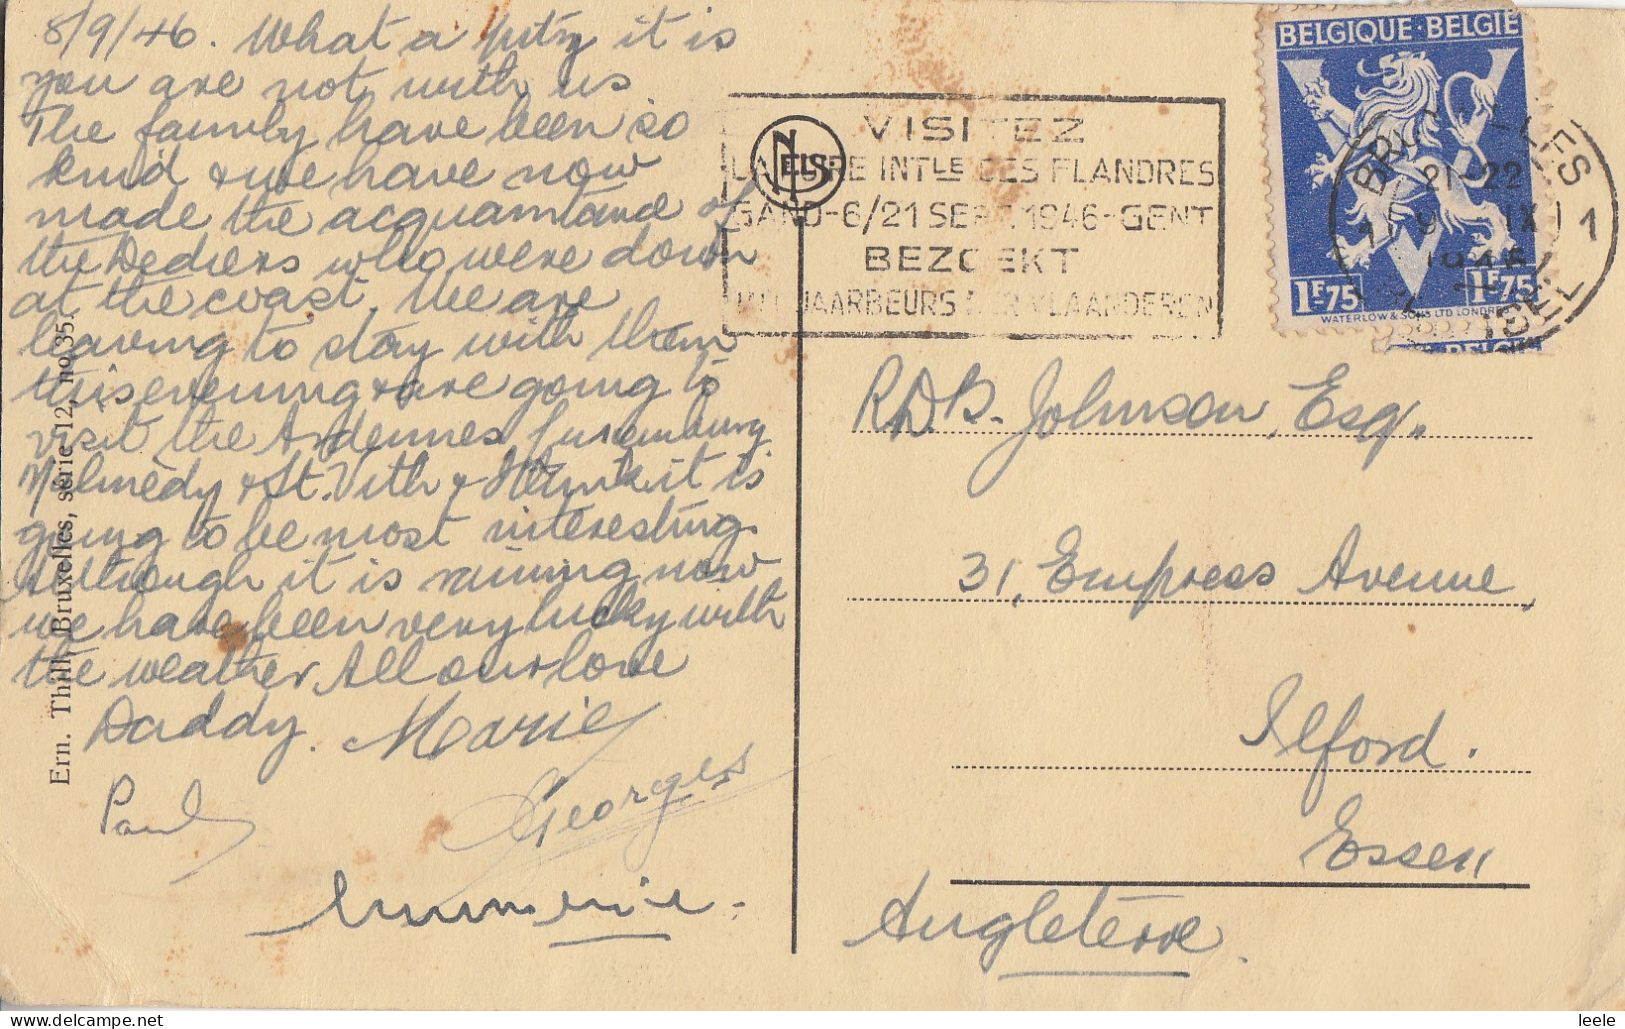 8/9/46. What a pity it is
you are not with us
The family have been so
kind & we have now
made the acquaintance of
the Dediers who were down
at the coast. We are
leaving to stay with them
this evening & are going to
visit the Ardennes Luxemburg
Malmedy & St. Vith & I think it is
going to be most interesting.
Although it is raining now
we have been very lucky with
the weather. All our love
Daddy. Marie
Paul
Georges
Ern. Thill, Bruxelles, série 12, no 35.
NELS
VISITEZ
LA FOIRE INTLE DES FLANDRES
GAND-6/21 SEPT. 1946-GENT
BEZOEKT
INT. JAARBEURS DER VLAANDEREN
BELGIQUE·BELGIE
1F75 1F75
WATERLOW & SONS LTD LONDRES
BRUXELLES 1
21-22
9 IX
1946
BRUSSEL
R.D.B. Johnson, Esq.
31, Empress Avenue,
Ilford.
Essex
Angleterre.
leele